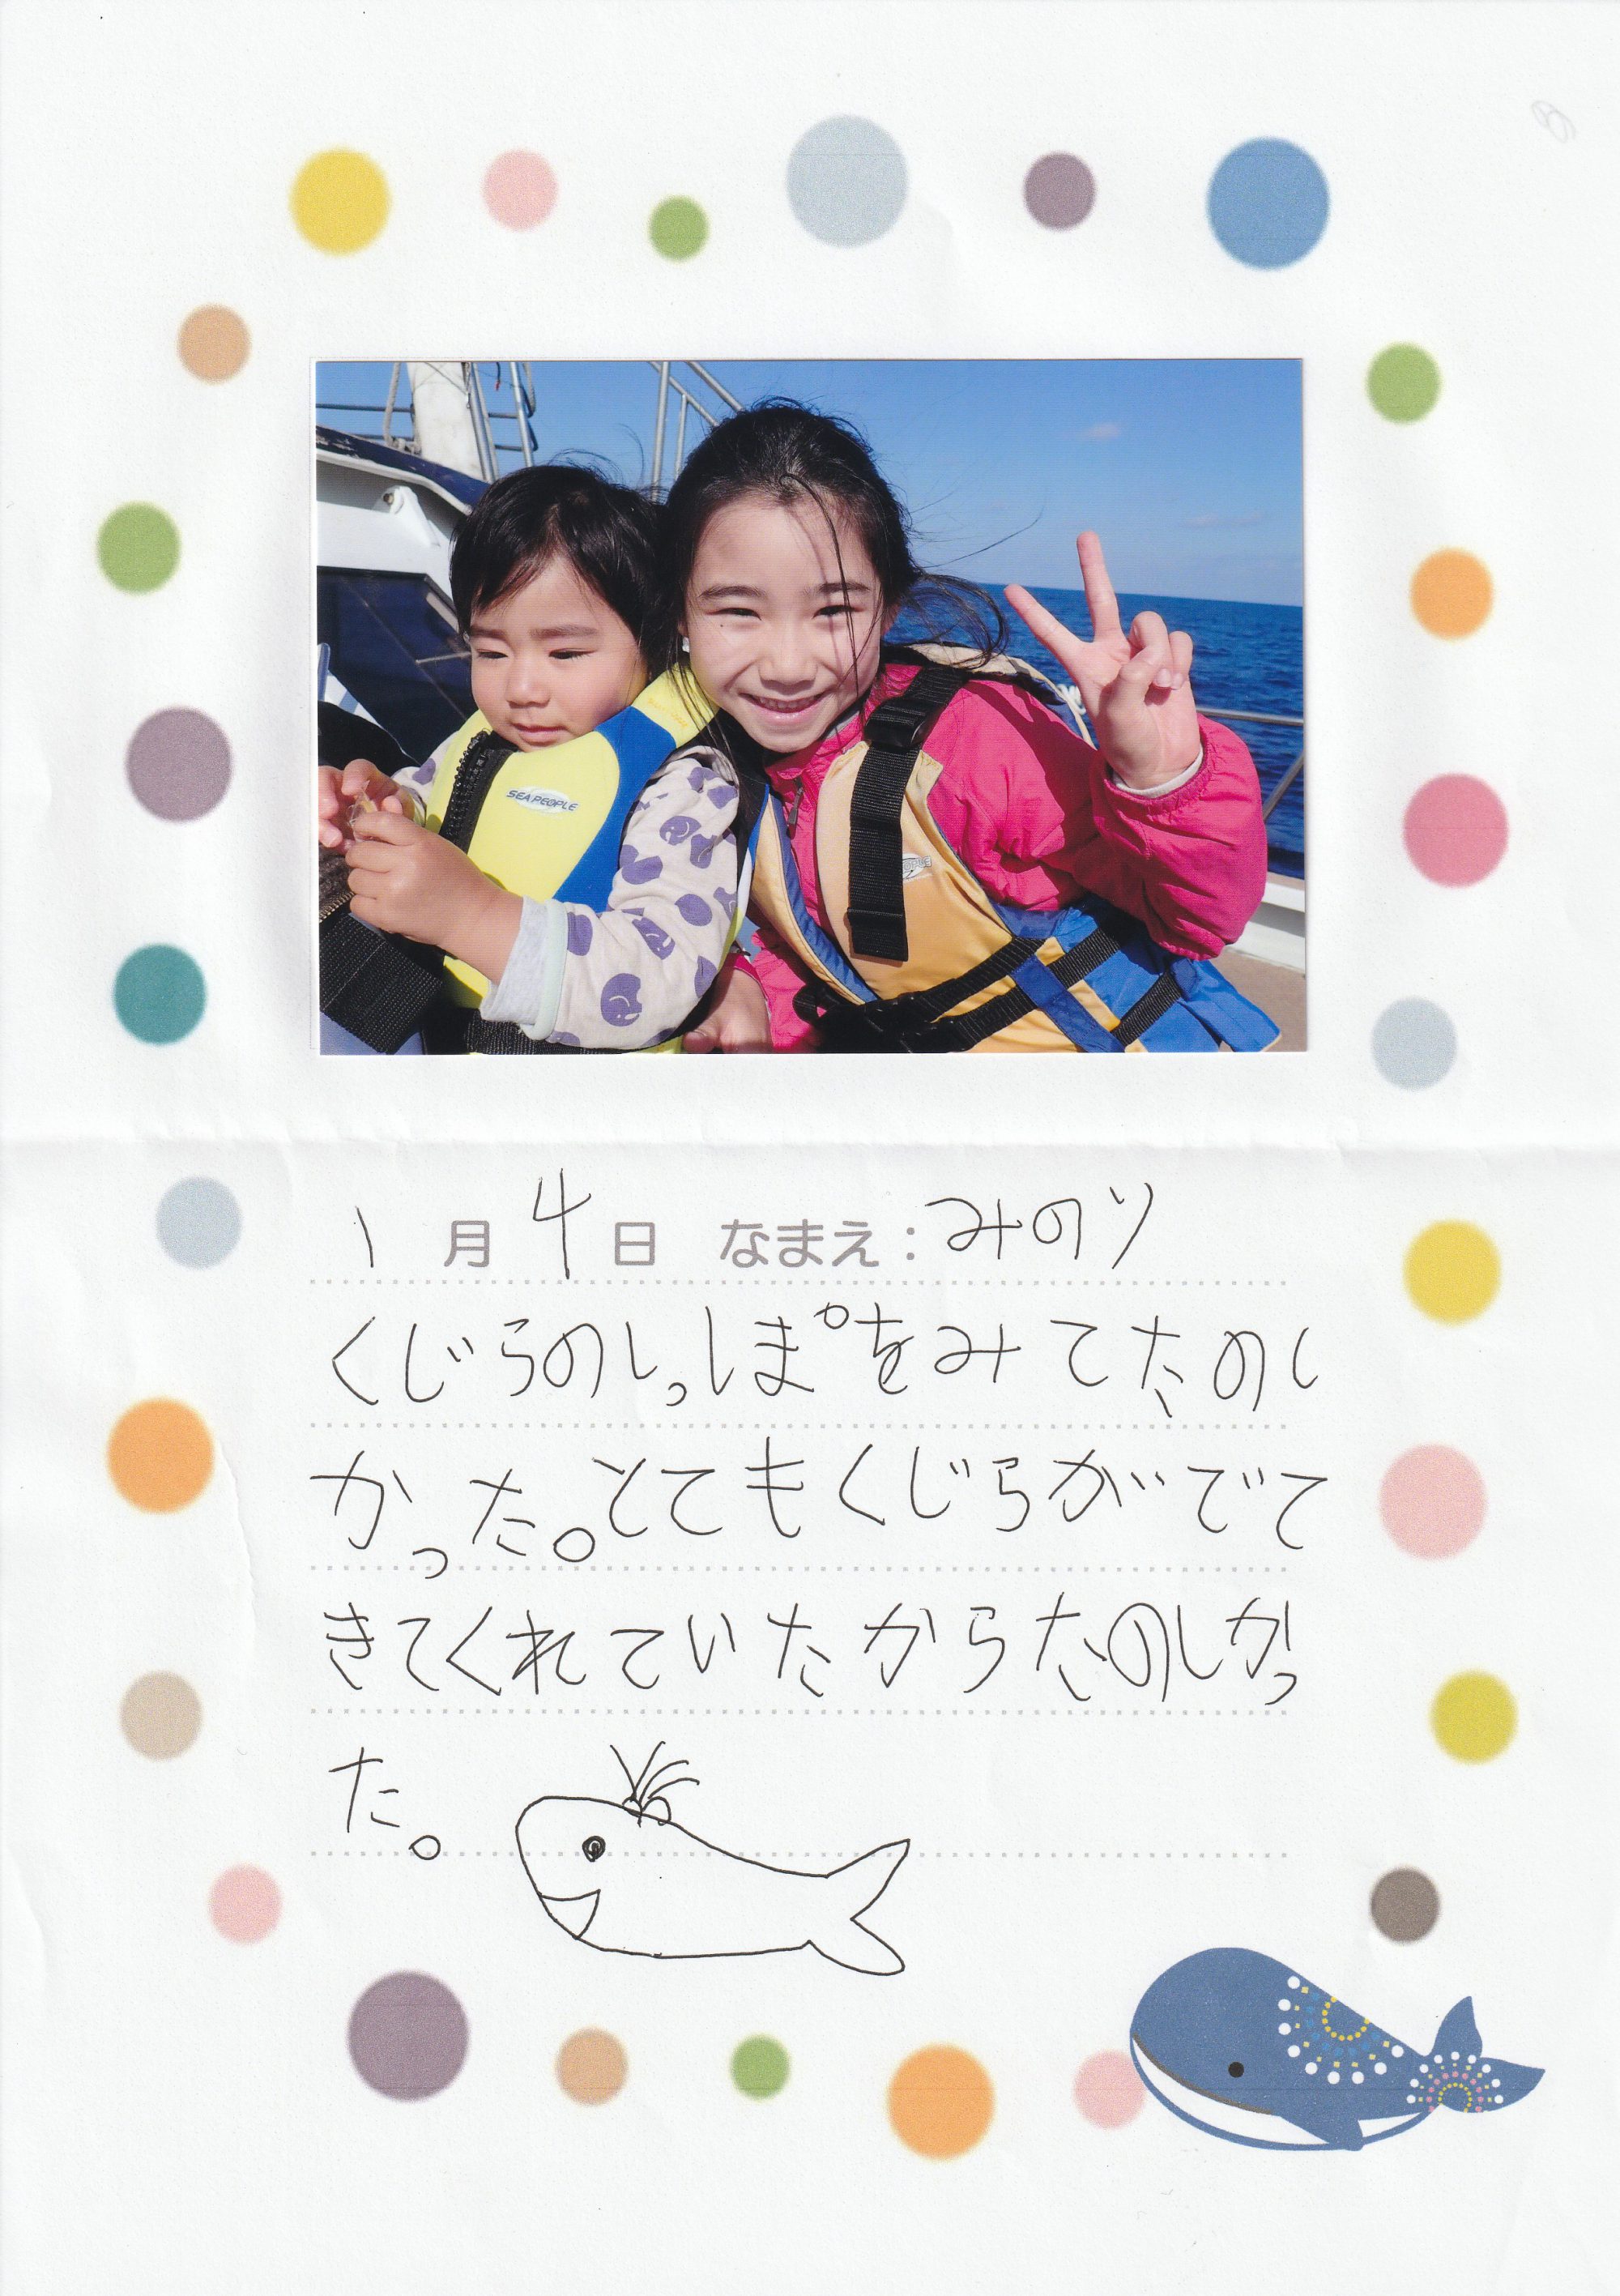 SEA PEOPLE
1月4日 なまえ:みのり
くじらのしっしぽをみてたのし
かった。とてもくじらがでて
きてくれていたからたのしかっ
た。